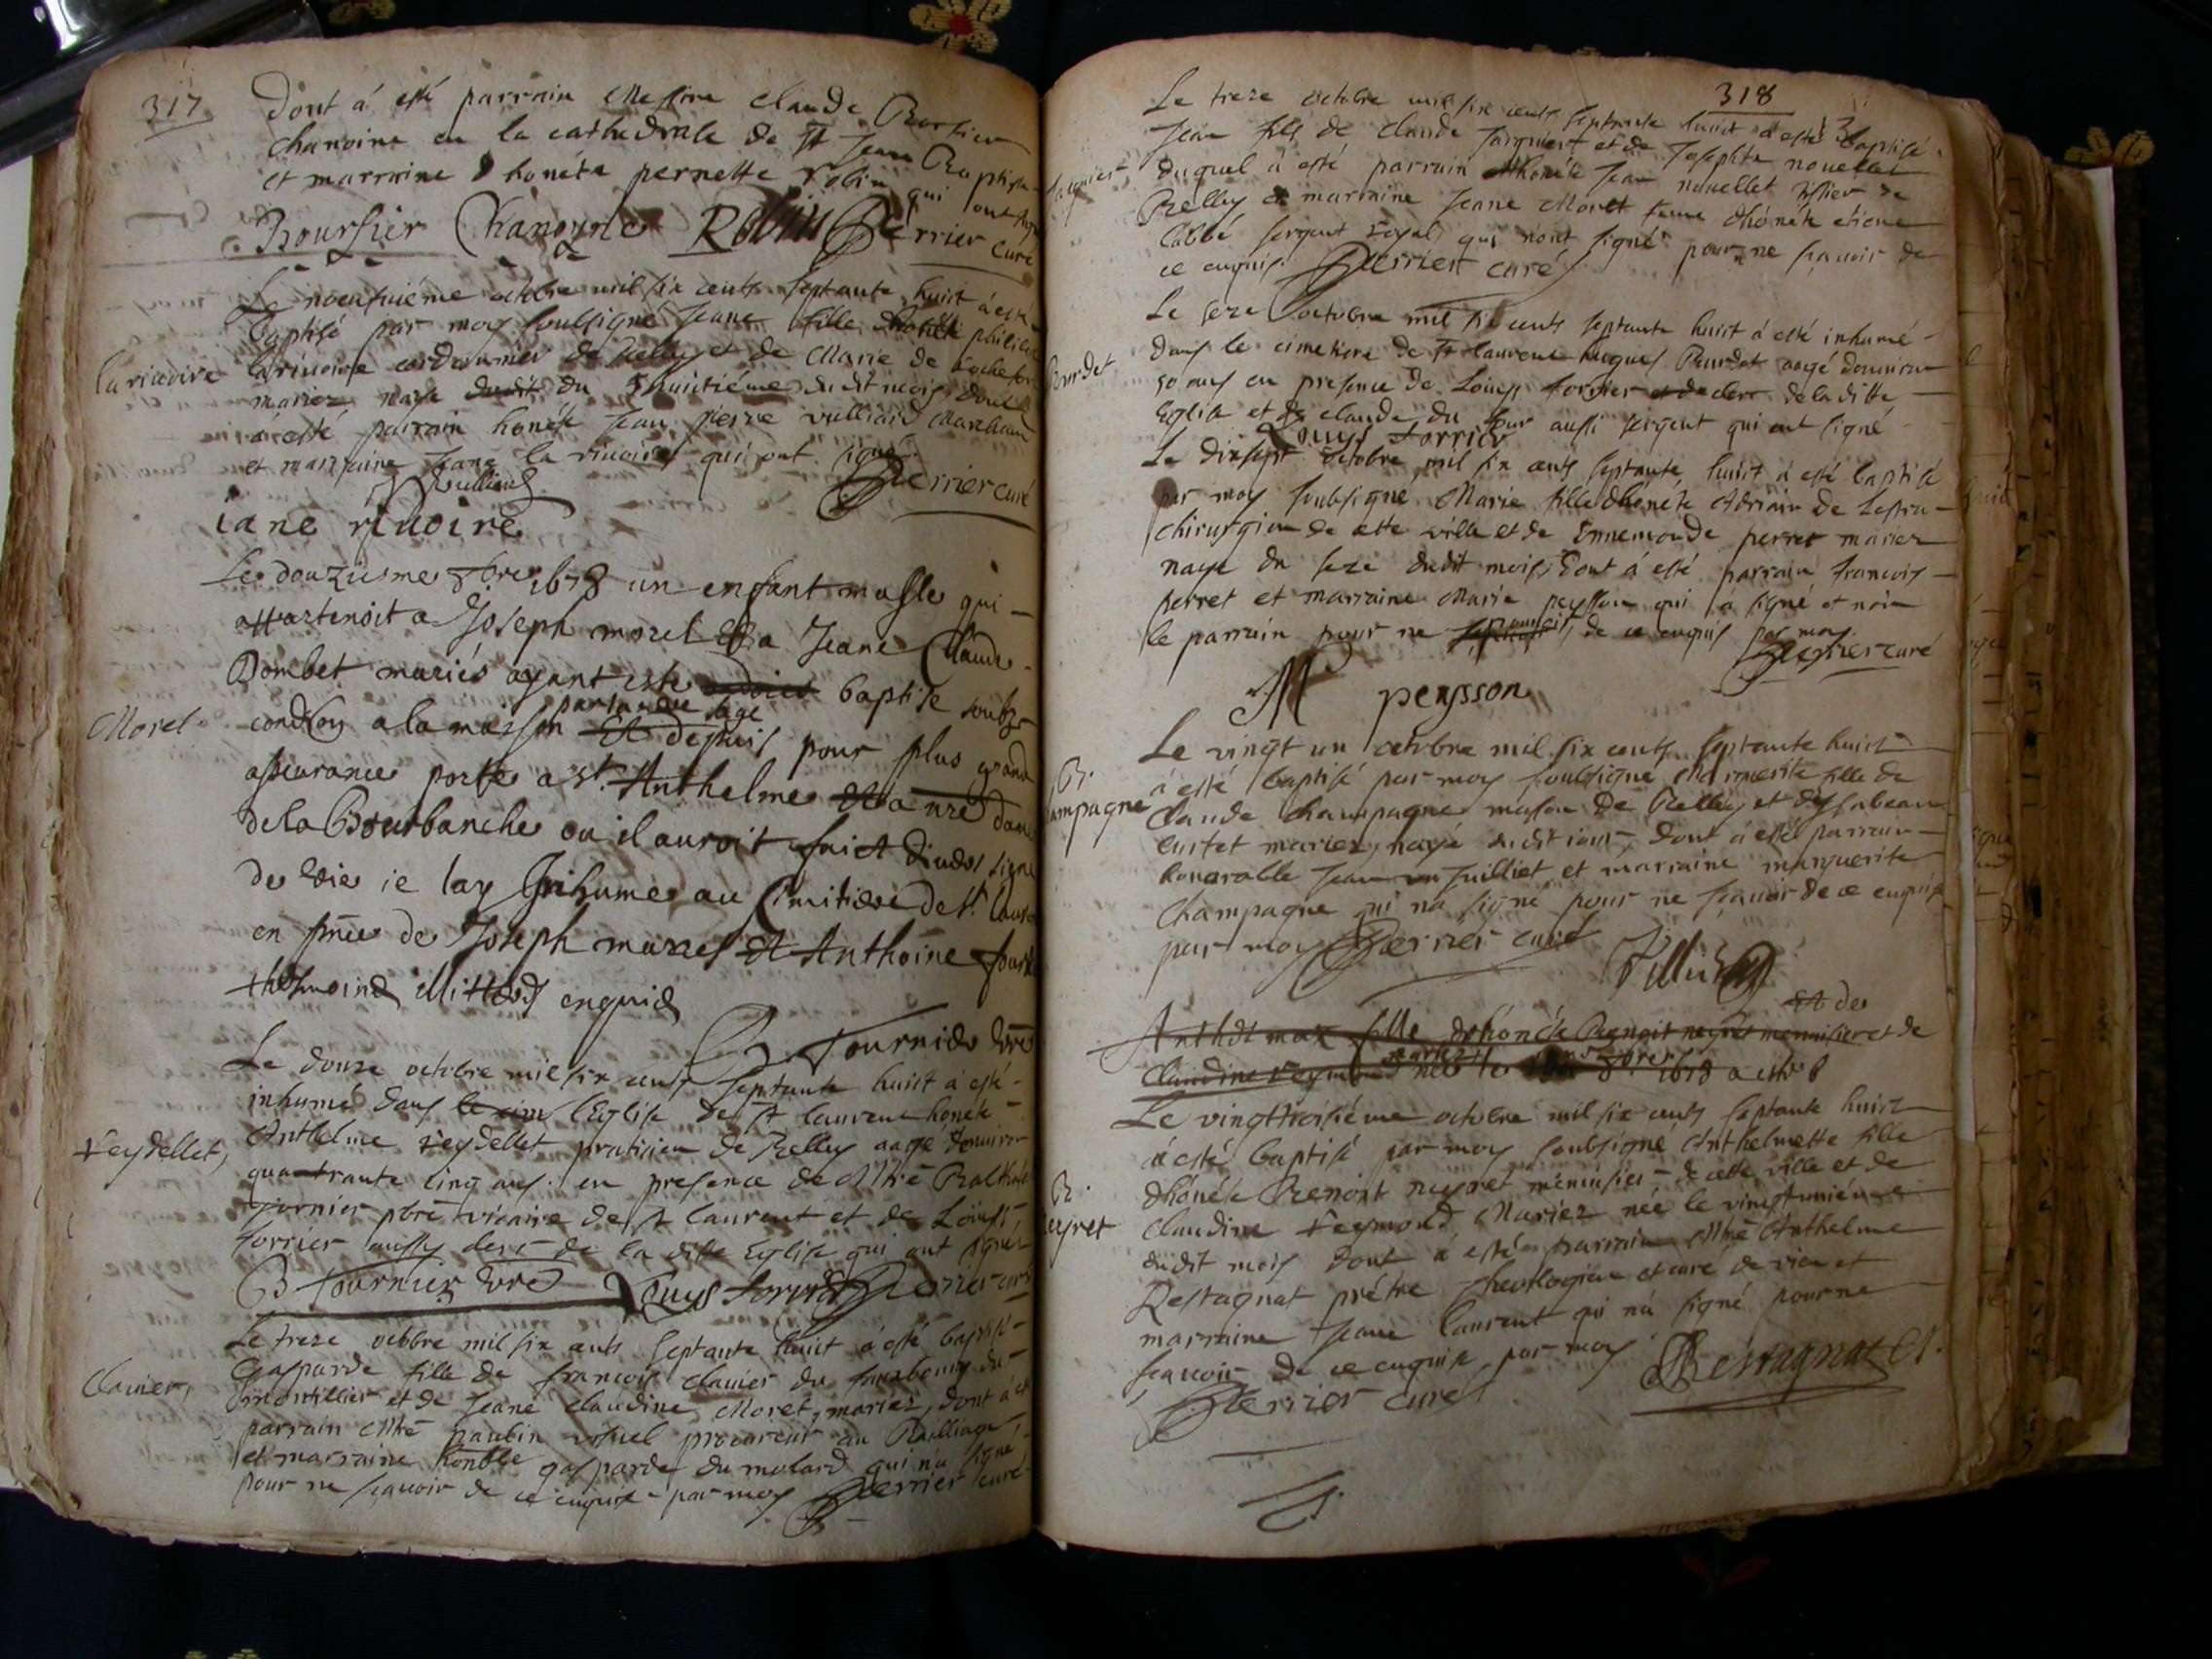 317
dont á esté parrain Messire Claude Boursier
chanoine en la cathedrale de St Jean Baptiste
et marraine honéte pernette robin qui ont signé
Boursier Chanoyne Robin Perrier curé
Le noeufuiéme octobre mil six cents septante huict á esté
baptisé par moy soubsigné Jeane fille dhonéte philibert
la riuoire
lariuoire cordonnier de Belley et de Marie de Rochefort
mariez naye du huictiéme dudit mois, dont
á esté parrain honéte Jean pierre vulliard Marchand
et marraine Jane la riuoire qui ont signé
vulliard
Perrier curé
iane riuoire
Le douziesme 8bre 1678 un enfant masle qui
appartenoit a Joseph morel Et a Jeane Claude
Bombet mariés ayant este baptise soubz
Morel
condion a la maison par la sage Et depuis pour plus grande
asseurance porte a st. Anthelme Et a nre dame
de la Bourbanche ou il auroit faict diuers signe
de vie ie lay Inhume au Cimitiere de st. laurent
en pnce de Joseph morel Et Anthoine
thesmoins illitteres enquis
B Fournier vre
Le douze octobre mil six cents septante huict á esté
inhumé dans le cim l'Eglise de St laurent honéte
Veydellet,
Anthelme veydellet praticien de Belley aagé denuiron
quatrante cinq ans. en presence de Mre Balthazard
fornier pbre vicaire de St laurent et de Louys
forrier aussy clerc de la ditte Eglise qui ont signez
B Fournier vre Louys forrier Perrier curé
Le treze octobre mil six cents septante huict á esté baptisé
Clauier,
Gasparde fille de francois clauier du fauxbourg du
montillier et de Jeane claudine Moret, mariez, dont á esté
parrain Mre paulin procureur au Bailliage
et marraine honble gasparde du molard qui ná signé
pour ne scauoir de ce enquise par moy Perrier curé
318
Le treze octobre mil six cents septante huict á esté baptisé
Jean fils de claude et de Josephte nouellet
duquel á esté parrain honéte Jean nouellet tissier de
Belley et marraine Jeane Moret feme dhonéte etiene
labbé sergent royal qui nont signé pour ne scauoir de
ce enquis. Perrier curé
Le seze octobre mil six cents septante huict á esté inhumé
Bourdet
dans le cimetiere de St laurent hugues Bourdet aagé denuiron
50 ans en presence de Louys forrier et de clerc de la ditte
Eglise et de claude du four aussi sergent qui ont signé
Louys forrier
Le dixsept octobre mil six cents septante huict á esté baptisé
par moy soubsigné Marie fille dhonéte Adrian de Lestra
chirurgien de cette ville et de Ennemonde perret mariez
naye du seze dudit mois, dont á esté parrain francois
perret et marraine Marie peysson qui á signé et non
le parrain pour ne scauoir de ce enquis par moy
Perrier curé
M peysson
Le vingt un octobre mil six cents septante huict
á esté baptisé par moy soubsigné Marguerite fille de
B.
Champagne
Claude champagne mason de Belley et dysabeau
curtet mariez, nayé dudit iour, dont á esté parrain
honorable Jean Juilliet et marraine marguerite
Champagne qui ná signé pour ne scauoir de ce enquise
par moy Perrier curé
Et de
Anthelmaz fille dehonéte Benoit neyret menuisier et de
Claudine veymond mariez née le 8bre 1678 a esté b
Le vingttroisiéme octobre mil six cents septante huict
á esté baptisé par moy soubsigné Anthelmette fille
B.
Neyret
dhonéte Benoit neyret menuisier de cette ville et de
claudine veymond, Mariez née le vingtuniéme
dudit mois dont á esté parrain Mre Anthelme
Restagnat prétre theologien et curé de vieu et
marraine Jeane laurent qui ná signé pour ne
scauoir de ce enquise par moy
Perrier curé
Restagnat